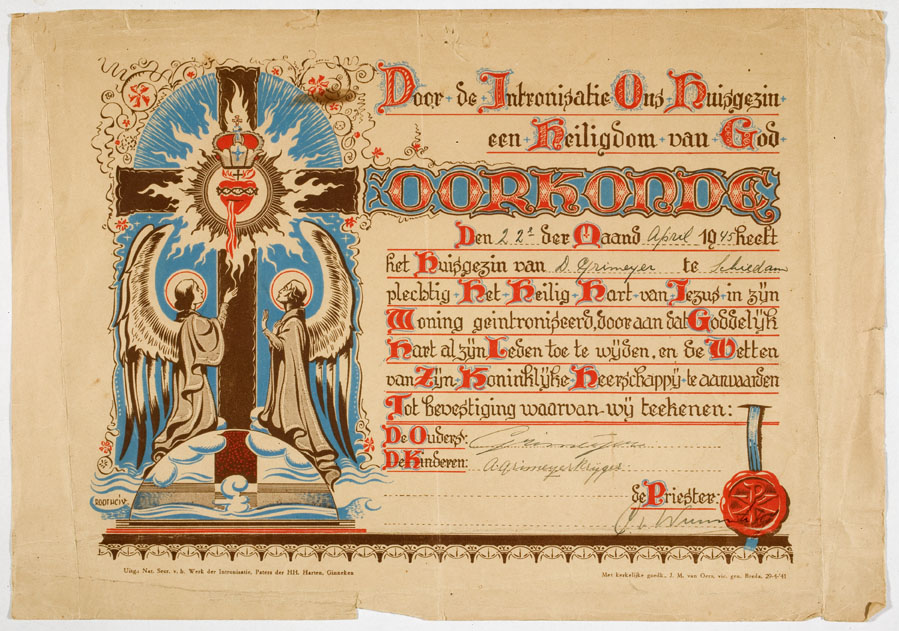 Door de Intronisatie Ons Huisgezin
een Heiligdom van God
OORKONDE
Den 22e der Maand April 1945 heeft
het Huisgezin van D. Grimeyer te Schiedam
plechtig Het Heilig Hart van Jezus in zijn
Woning geintroniseerd, door aan dat Goddelijk
Hart al zijn Leden toe te wijden, en de Wetten
van Zijn Koninklijke Heerschappij te aanvaarden
Tot bevestiging waarvan wij teekenen:
De Ouders:
De Kinderen: A Grimeyer Krijger
de Priester:
Uitg: Nat. Secr. v. h. Werk der Intronisatie, Paters der HH. Harten, Ginneken
Met kerkelijke goedk., J. M. van Oers, vic. gen. Breda, 29-4/41